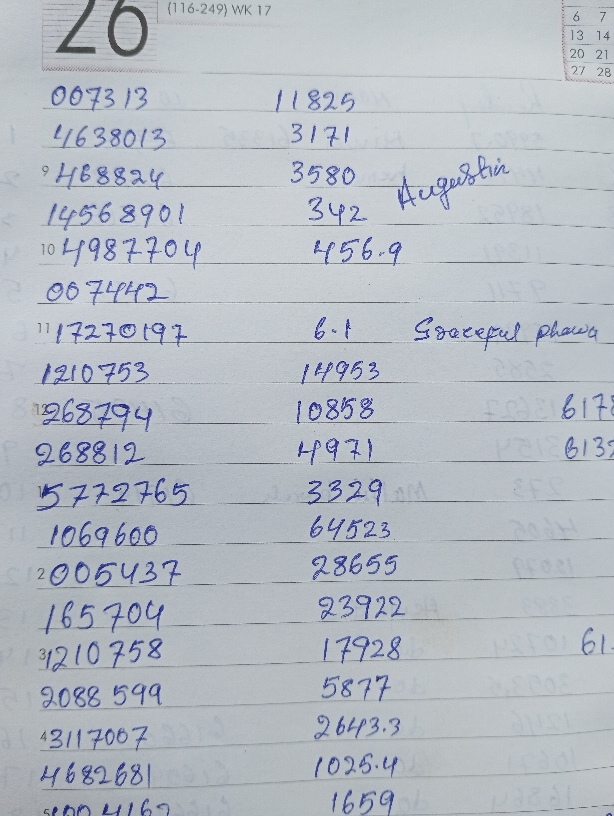 26 (116-249) WK 17
6 7
13 14
20 21
27 28
007313 11825
4638013 3171
9 468824 3580 Augustin
14568901 342
10 4987704 456.9
007442
11 17270197 6.1 Graceful
1210753 14953
12 268794 10858 6178
268812 4971 6132
1 5772765 3329
1069600 64523
2 005437 28655
165704 23922
3 1210758 17928 61
2088599 5877
4 3117007 2643.3
4682681 1025.4
5 1659